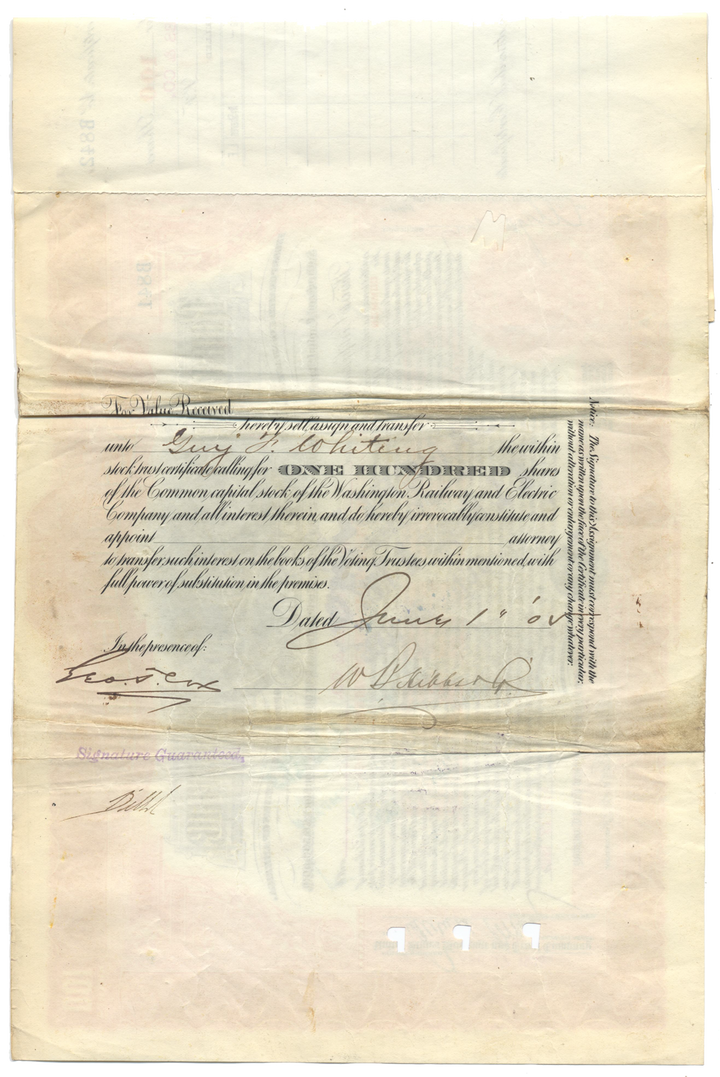 For Value Received
hereby sell, assign and transfer
unto Guy F. Whiting the within
stock trust certificate calling for ONE HUNDRED shares
of the Common capital stock of the Washington Railway and Electric
Company and all interest therein, and do hereby irrevocably constitute and
appoint attorney
to transfer such interest on the books of the Voting Trustees within mentioned, with
full power of substitution in the premises.
Dated June 1"
In the presence of:
Geo. T. Cox
W B Hibbs & Co
Signature Guaranteed,
Notice: The Signature to this Assignment must correspond with the
name as written upon the face of the Certificate in every particular,
without alteration or enlargement or any change whatever.
B842
B841
100